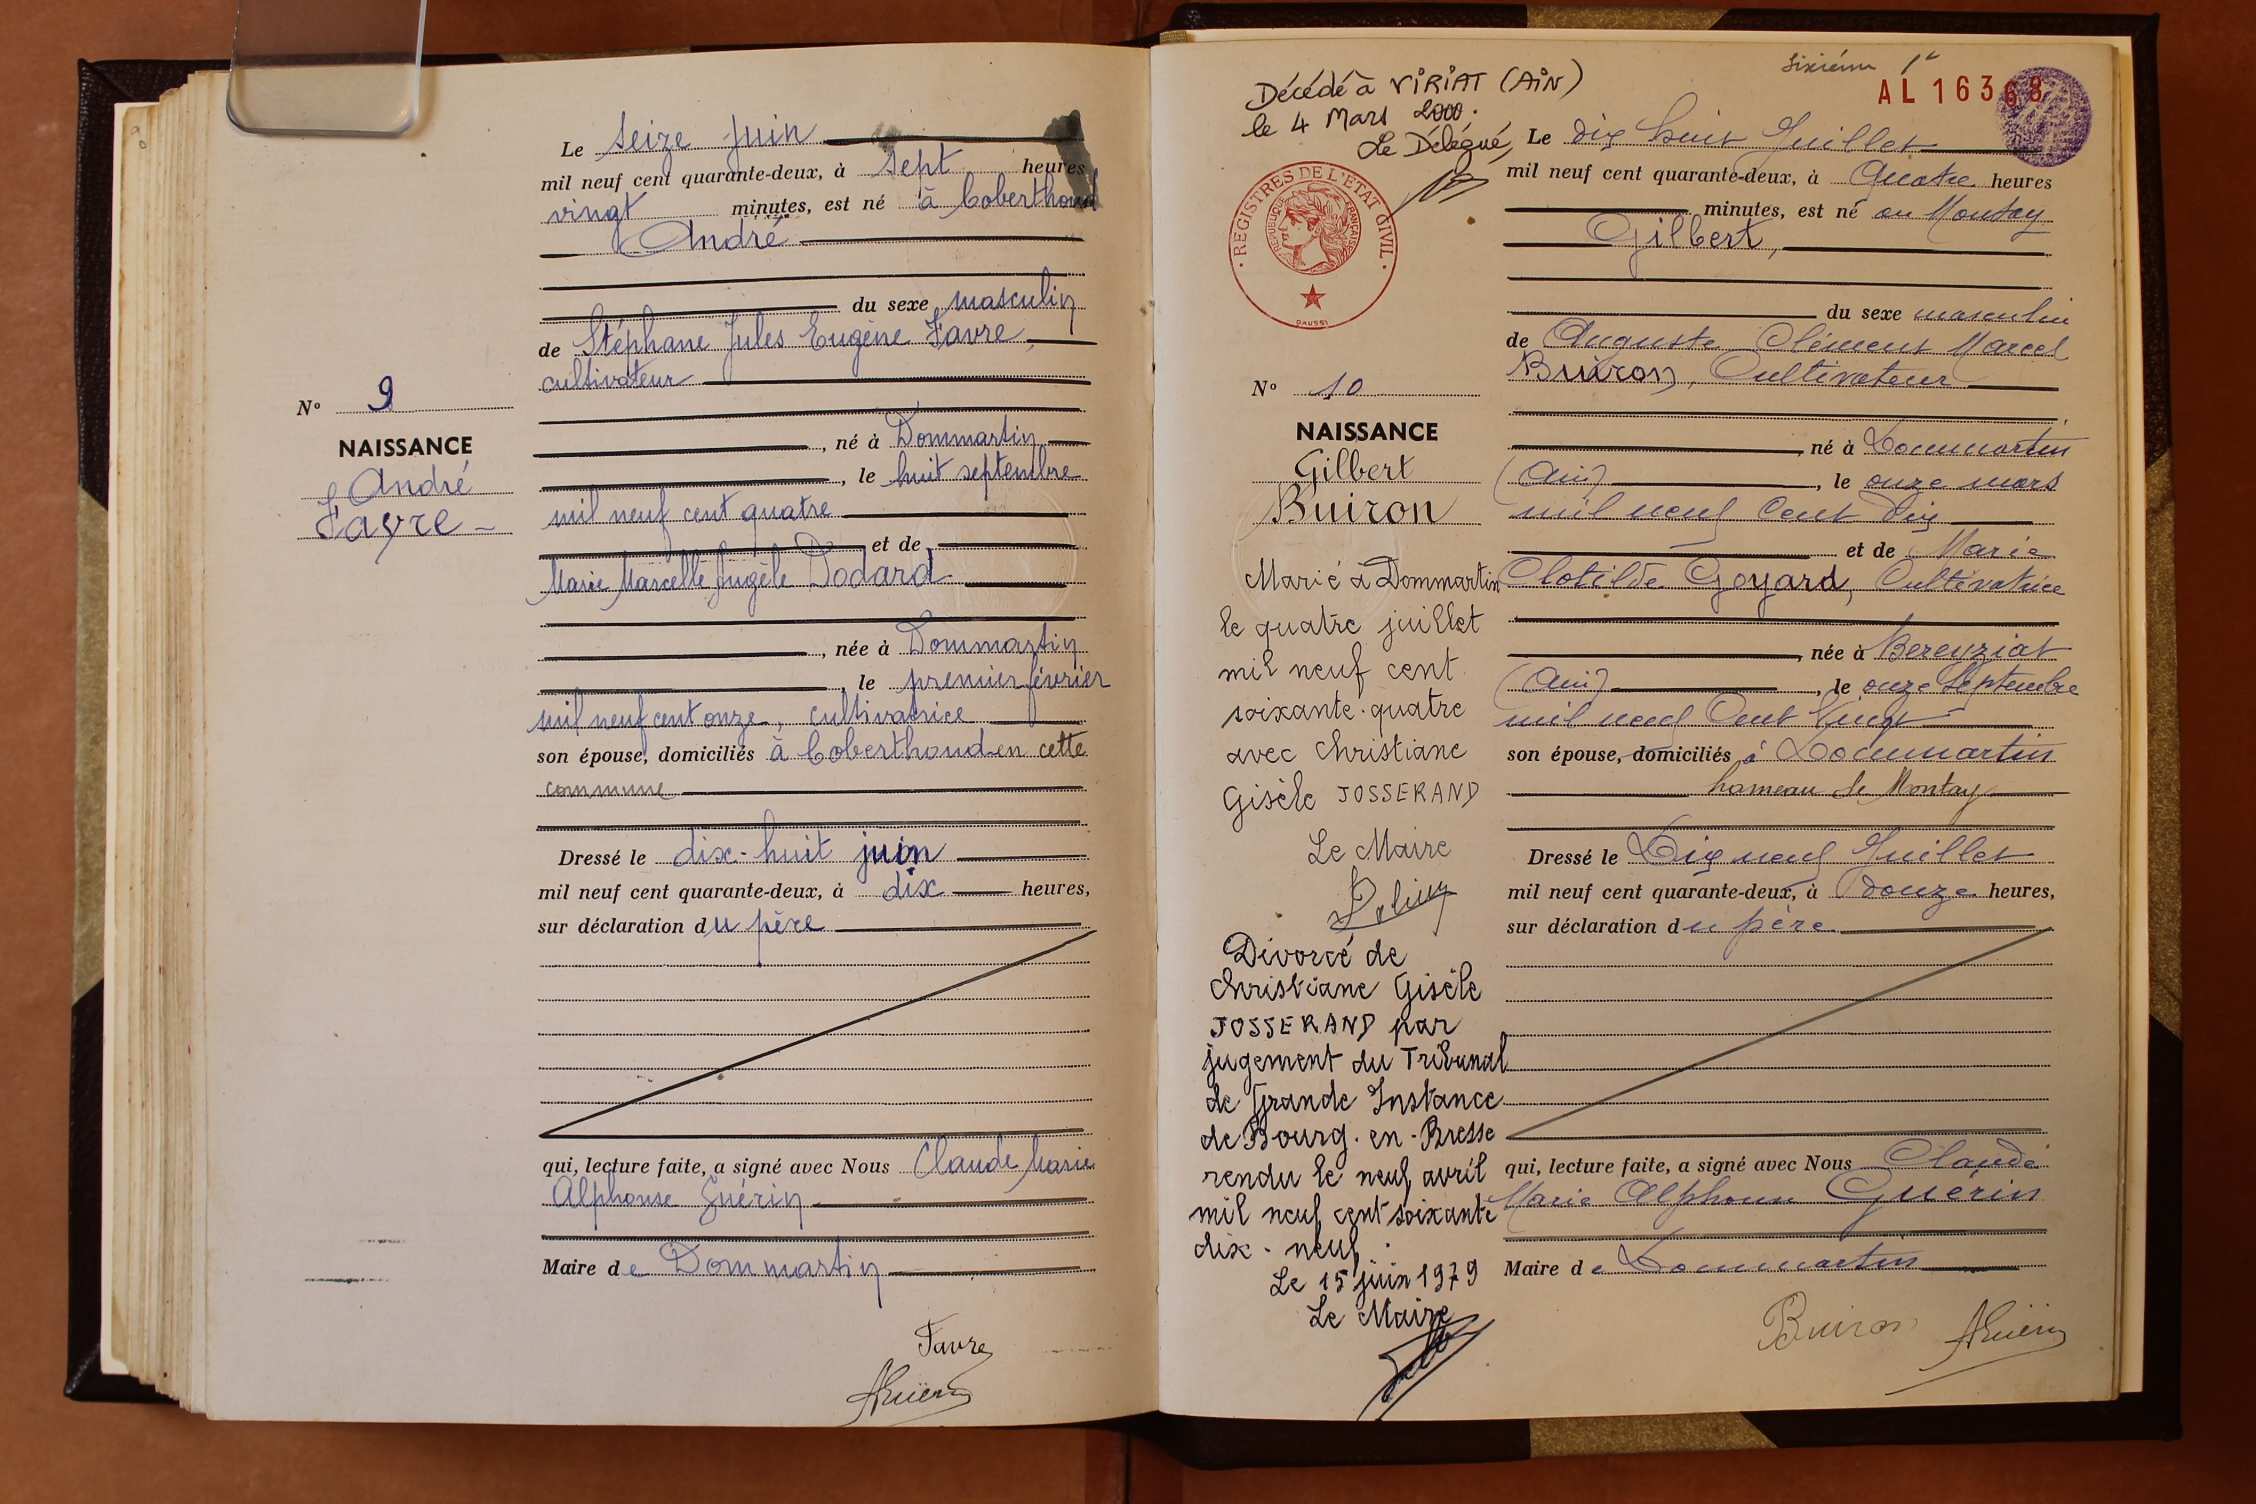 Le seize juin
mil neuf cent quarante-deux, à sept heures
vingt minutes, est né à Coberthoud
André
du sexe masculin
de Stéphane Jules Eugène Favre,
cultivateur
N° 9
NAISSANCE
André
Favre
, né à Dommartin
, le huit septembre
mil neuf cent quatre
et de
Marie Marcelle Angèle Dodard
, née à Dommartin
, le premier février
mil neuf cent onze, cultivatrice
son épouse, domiciliés à Coberthoud en cette
commune
Dressé le dix-huit juin
mil neuf cent quarante-deux, à dix heures,
sur déclaration du père
qui, lecture faite, a signé avec Nous Claude Marie
Alphonse Guérin
Maire de Dommartin
Favre
AGuérin
Sixième
AL 16368
Décédé à VIRIAT (AIN)
le 4 Mars 2000.
Le Délégué,
REGISTRES DE L'ETAT CIVIL
REPUBLIQUE FRANÇAISE
DAUSSI
Le dix huit Juillet
mil neuf cent quarante-deux, à Quatre heures
minutes, est né au Montay
Gilbert,
du sexe masculin
de Auguste Clément Marcel
Buiron, Cultivateur
N° 10
NAISSANCE
Gilbert
Buiron
, né à Dommartin
(Ain) , le onze mars
mil neuf Cent Dix
et de Marie
Clotilde Goyard, Cultivatrice
, née à Bereyziat
(Ain) , le onze Septembre
mil neuf Cent Vingt
son épouse, domiciliés à Dommartin
hameau de Montay
Dressé le Dix neuf Juillet
mil neuf cent quarante-deux, à douze heures,
sur déclaration du père
qui, lecture faite, a signé avec Nous Claude
Marie Alphonse Guérin
Maire de Dommartin
Buiron
AGuérin
Marié à Dommartin
le quatre juillet
mil neuf cent
soixante-quatre
avec Christiane
Gisèle JOSSERAND
Le Maire
Divorcé de
Christiane Gisèle
JOSSERAND par
jugement du Tribunal
de Grande Instance
de Bourg-en-Bresse
rendu le neuf avril
mil neuf cent soixante
dix-neuf.
Le 15 juin 1979
Le Maire